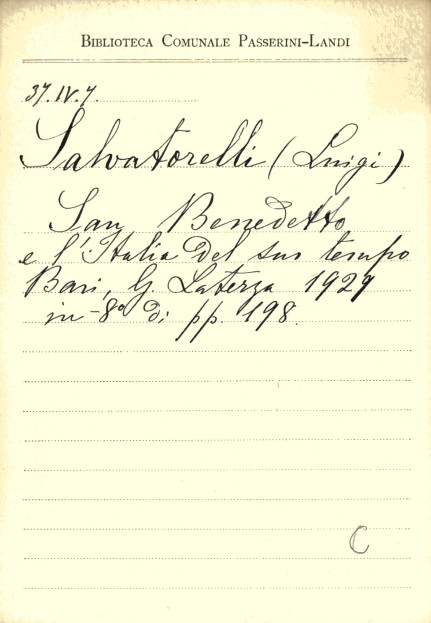 BIBLIOTECA COMUNALE PASSERINI-LANDI
37.IV.7.
Salvatorelli (Luigi)
San Benedetto
e l'Italia del suo tempo
Bari, G. Laterza 1929
in-8º di pp. 198.
C